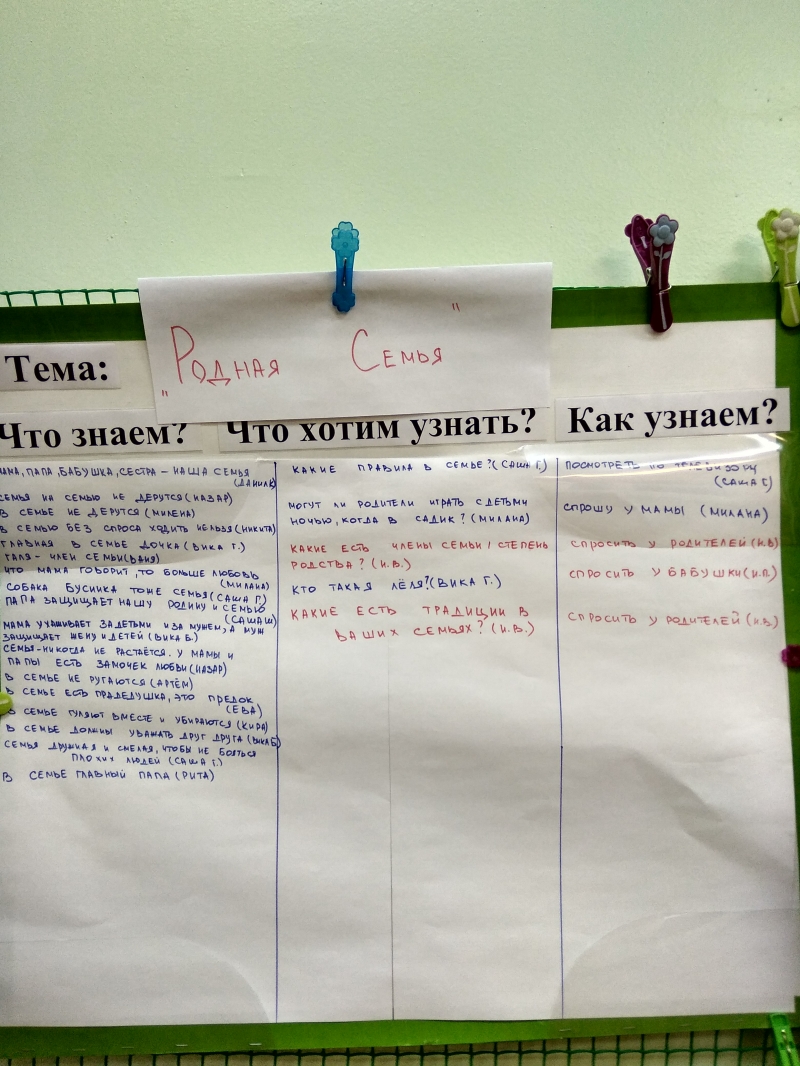 "Родная Семья"
Тема:
Что знаем?
МАМА, ПАПА, БАБУШКА, СЕСТРА - НАША СЕМЬЯ
(ДАНИЛ)
СЕМЬЯ НА СЕМЬЮ НЕ ДЕРУТСЯ (НАЗАР)
В СЕМЬЕ НЕ ДЕРУТСЯ (МИЛЕНА)
В СЕМЬЮ БЕЗ СПРОСА ХОДИТЬ НЕЛЬЗЯ (НИКИТА)
ГЛАВНАЯ В СЕМЬЕ ДОЧКА (ВИКА Г.)
ГАЛЯ - ЧЛЕН СЕМЬИ (ВАНЯ)
ЧТО МАМА ГОВОРИТ, ТО БОЛЬШЕ ЛЮБОВЬ
(МИЛАНА)
СОБАКА БУСИНКА ТОЖЕ СЕМЬЯ (САША Г.)
ПАПА ЗАЩИЩАЕТ НАШУ РОДИНУ И СЕМЬЮ
(САША Ш)
МАМА УХАЖИВАЕТ ЗА ДЕТЬМИ И ЗА МУЖЕМ, А МУЖ
ЗАЩИЩАЕТ ЖЕНУ И ДЕТЕЙ (ВИКА Б.)
СЕМЬЯ - НИКОГДА НЕ РАСТАЁТСЯ. У МАМЫ И
ПАПЫ ЕСТЬ ЗАМОЧЕК ЛЮБВИ (НАЗАР)
В СЕМЬЕ НЕ РУГАЮТСЯ (АРТЁМ)
В СЕМЬЕ ЕСТЬ ПРАДЕДУШКА, ЭТО ПРЕДОК
(ЕВА)
В СЕМЬЕ ГУЛЯЮТ ВМЕСТЕ И УБИРАЮТСЯ (КИРА)
В СЕМЬЕ ДОЛЖНЫ УВАЖАТЬ ДРУГ ДРУГА (ВИКА Б)
СЕМЬЯ ДРУЖНАЯ И СМЕЛАЯ, ЧТОБЫ НЕ БОЯТЬСЯ
ПЛОХИХ ЛЮДЕЙ (САША Г.)
В СЕМЬЕ ГЛАВНЫЙ ПАПА (РИТА)
Что хотим узнать?
КАКИЕ ПРАВИЛА В СЕМЬЕ? (САША Г.)
МОГУТ ЛИ РОДИТЕЛИ ИГРАТЬ С ДЕТЬМИ
НОЧЬЮ, КОГДА В САДИК? (МИЛАНА)
КАКИЕ ЕСТЬ ЧЛЕНЫ СЕМЬИ / СТЕПЕНЬ
РОДСТВА? (И.В.)
КТО ТАКАЯ ЛЁЛЯ? (ВИКА Г.)
КАКИЕ ЕСТЬ ТРАДИЦИИ В
ВАШИХ СЕМЬЯХ? (И.В.)
Как узнаем?
ПОСМОТРЕТЬ ПО ТЕЛЕВИЗОРУ
(САША Г)
СПРОШУ У МАМЫ (МИЛАНА)
СПРОСИТЬ У РОДИТЕЛЕЙ (И.В)
СПРОСИТЬ У БАБУШКИ
СПРОСИТЬ У РОДИТЕЛЕЙ (И.В)